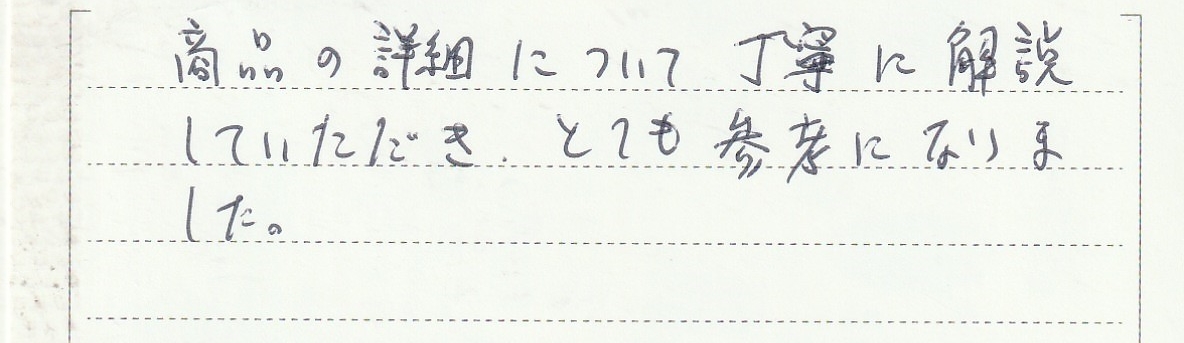 商品の詳細について丁寧に解説
していただき、とても参考になりま
した。